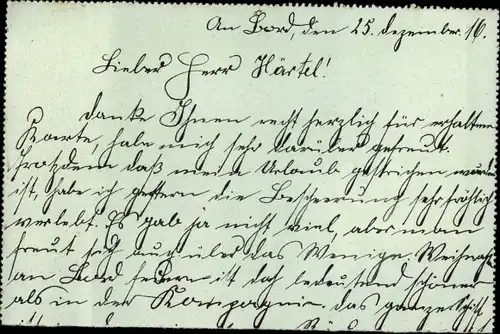 An Bord, den 25. Dezember. 16.
Lieber Herr Härtel!
Danke Ihnen recht herzlich für erhaltene
Karte, habe mich sehr darüber gefreut.
Trotzdem daß mein Urlaub gestrichen worden
ist, habe ich gestern die Bescheerung sehr fröhlich
verlebt. Es gab ja nicht viel, aber man
freut sich auch über das Wenige. Weihnacht
an Bord feiern ist doch bedeutend schöner
als in der Kompagnie. Das ganze Schiff